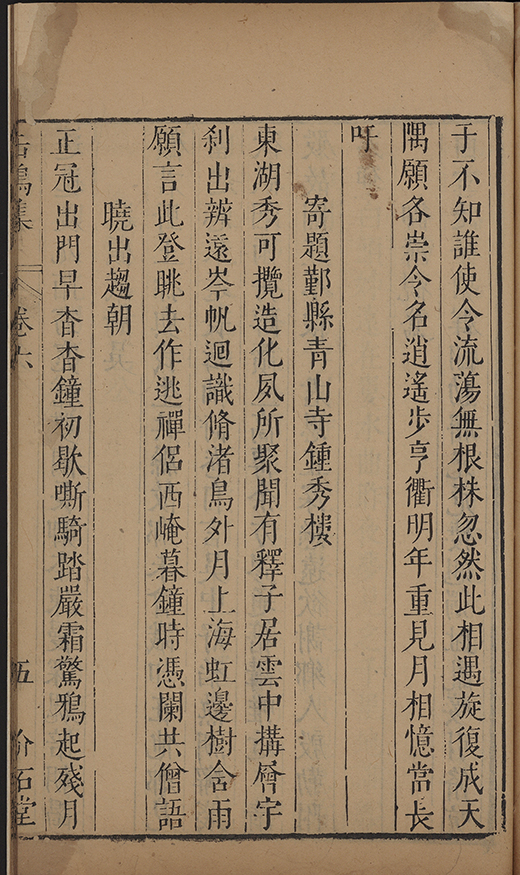 于不知誰使令流蕩無根株忽然此相遇旋復成天
隅願各崇令名逍遙步亨衢明年重見月相憶當長
吁
寄題鄞縣青山寺鍾秀樓
東湖秀可攬造化夙所聚聞有釋子居雲中構層宇
剎出辨遠岑帆迴識脩渚鳥外月上海虹邊樹含雨
願言此登眺去作逃禪侶西崦暮鐘時憑闌共僧語
曉出趨朝
正冠出門早杳杳鐘初歇嘶騎踏嚴霜驚鴉起殘月
卷六
五